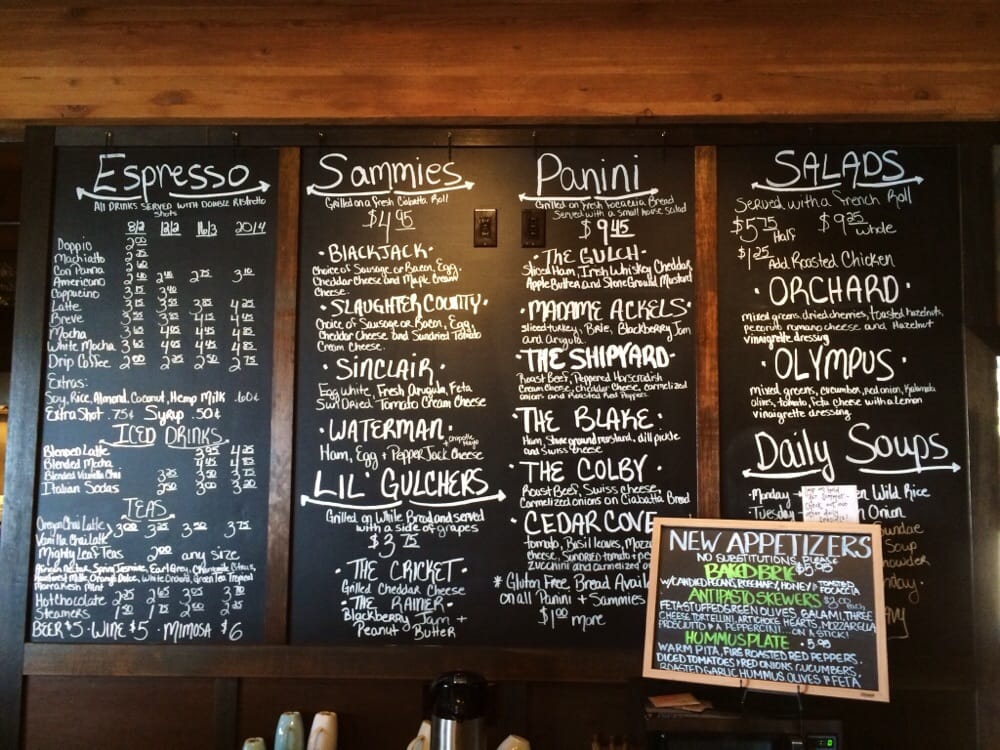 Espresso
All Drinks Served with Double Ristretto
Shots
8oz 12oz 16oz 20oz
Doppio
Machiatto
Con Panna
Americano 2.75 3.10
Cappucino
Latte 4.25
Breve
Mocha 4.45 4.85
White Mocha 3.65 4.05 4.45 4.85
Drip Coffee 2.00 2.25 2.50 2.75
Extras:
Soy, Rice, Almond, Coconut, Hemp Milk .60¢
Extra Shot .75¢ Syrup .50¢
Iced Drinks
Blended Latte
Blended Mocha
Blended Vanilla Chai
Italian Sodas 2.50 3.00 3.20
Teas
Oregon Chai Latte 3.00 3.25 3.50 3.75
Vanilla Chai Latte
Mighty Leaf Teas 2.00 any size
African Nectar, Spring Jasmine, Earl Grey, Chamomile Citrus,
Rainforest Mate, Orange Dulce, White Orchard, Green Tea Tropical
Marrakesh Mint
Hot chocolate
Steamers
Beer $5 · Wine $5 · Mimosa $6
Sammies
Grilled on a Fresh Ciabatta Roll
$4.95
·Blackjack·
Choice of Sausage or Bacon, Egg,
Cheddar Cheese and Maple Cream
Cheese.
·Slaughter County·
Choice of Sausage or Bacon, Egg,
Cheddar Cheese and Sundried Tomato
Cream Cheese.
·Sinclair·
Egg white, Fresh Arugula, Feta
Sun Dried Tomato Cream Cheese
·Waterman·
Ham, Egg + Pepper Jack Cheese + Chipotle Mayo
Lil' Gulchers
Grilled on White Bread and served
with a side of grapes
$3.75
·The Cricket·
Grilled Cheddar Cheese
·The Rainer·
Blackberry Jam +
Peanut Butter
Panini
Grilled on fresh Focaccia Bread
Served with a small house salad
$9.45
·The Gulch·
Sliced Ham, Irish Whiskey Cheddar,
Apple Butter and Stone Ground Mustard
Madame Ackels·
sliced turkey, Brie, Blackberry Jam
and Arugula.
The Shipyard·
Roast Beef, Peppered Horseradish
Cream Cheese, cheddar cheese, carmelized
onions and Roasted Red Peppers
·The Blake·
Ham, Stone ground mustard, dill pickle
and Swiss cheese
·The Colby·
Roast Beef, Swiss cheese,
Carmelized onions on Ciabatta Bread
·Cedar Cove
tomato, Basil leaves,
cheese, Sundried tomato +
zucchini and carmelized
* Gluten Free Bread
on all Panini + Sammies
$1.00 more
Salads
Served with a French Roll
$5.75 Half $9.25 whole
$1.25 Add Roasted Chicken
·Orchard·
mixed greens, dried cherries, toasted hazelnuts,
pecorino romano cheese and Hazelnut
vinaigrette dressing
·Olympus·
mixed greens, cucumber, red onion, Kalamata
olives, tomato, feta cheese with a lemon
vinaigrette dressing.
Daily Soups
·Monday - Wild Rice
·Tuesday - Onion
Soup
New Appetizers
No Substitutions, Please
Baked Brie $5.95
w/ Candied Pecans, Honey + Toasted
Focaccia
Antipasto Skewers $3.00 each
Feta Stuffed Green Olives, Salami, Three
Cheese Tortellini, Artichoke Hearts, Mozzarella
Prosciutto + a Peppercini on a Stick!
Hummus Plate · 5.95
Warm Pita, Fire Roasted Red Peppers,
Diced Tomatoes + Red Onions, Cucumbers,
Roasted Garlic Hummus, Olives + Feta